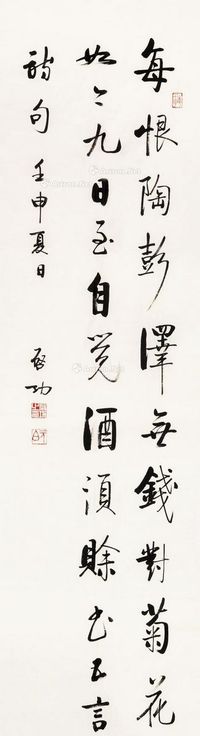 每恨陶彭澤無錢對菊花
如今九日至自覺酒須賒書五言
詩句 壬申夏日 啟功